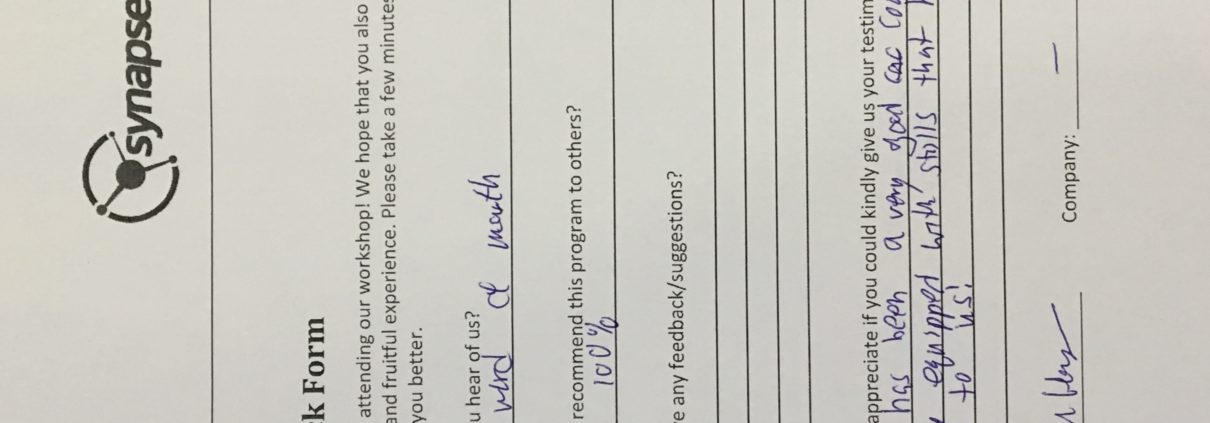 synapse
k Form
attending our workshop! We hope that you also
and fruitful experience. Please take a few minutes
you better.
u hear of us?
word of mouth
recommend this program to others?
100%
e any feedback/suggestions?
appreciate if you could kindly give us your testim
has been a very good
equipped with skills that
to us!
Company: —